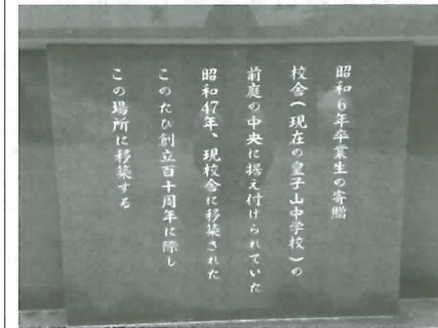 昭和6年卒業生の寄贈
校舎(現在の皇子山中学校)の
前庭の中央に据え付けられていた
昭和47年、現校舎に移築された
このたび創立百十周年に際し
この場所に移築する